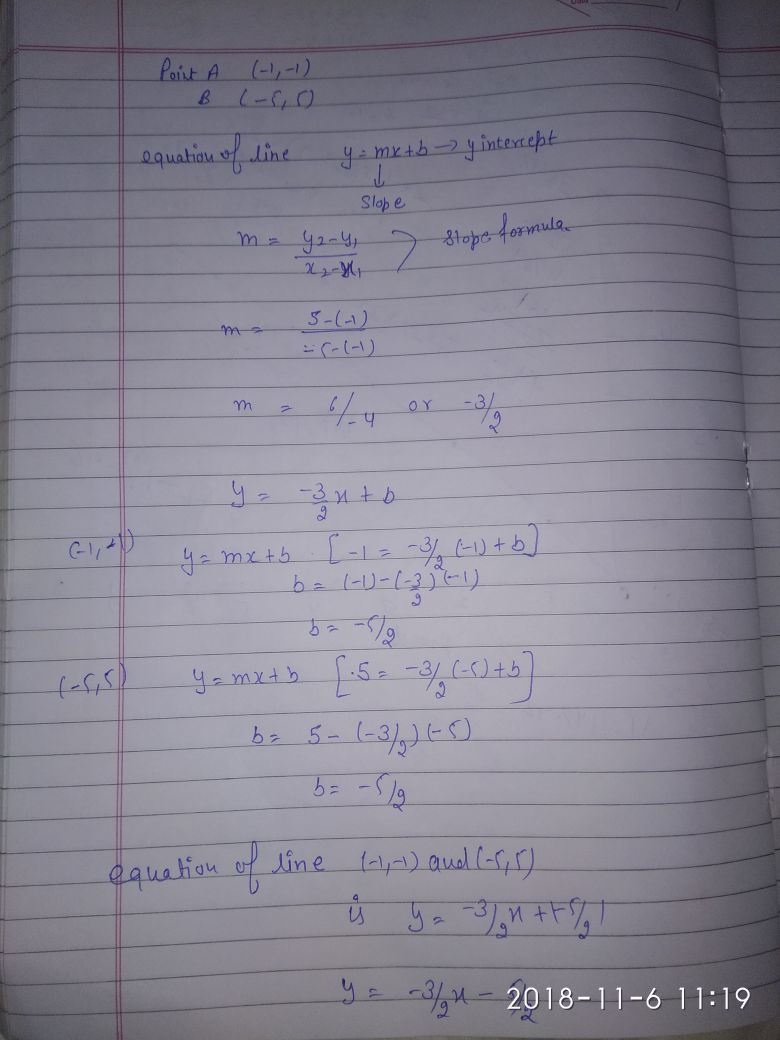 Point A (-1,-1)
B (-5,5)
equation of line y = mx+b → y intercept
↓
Slope
m = y2-y1 / x2-x1 ) slope formula
m = 5-(-1) / -5-(-1)
m = 6/-4 or -3/2
y = -3/2 x + b
(-1,-1) y = mx+b . [ -1 = -3/2 (-1) + b ]
b = (-1)-(-3/2)(-1)
b = -5/2
(-5,5) y = mx+b [ .5 = -3/2 (-5) + b ]
b = 5 - (-3/2)(-5)
b = -5/2
equation of line (-1,-1) and (-5,5)
is y = -3/2 x + (-5/2)
y = -3/2 x - 5/2
2018-11-6 11:19